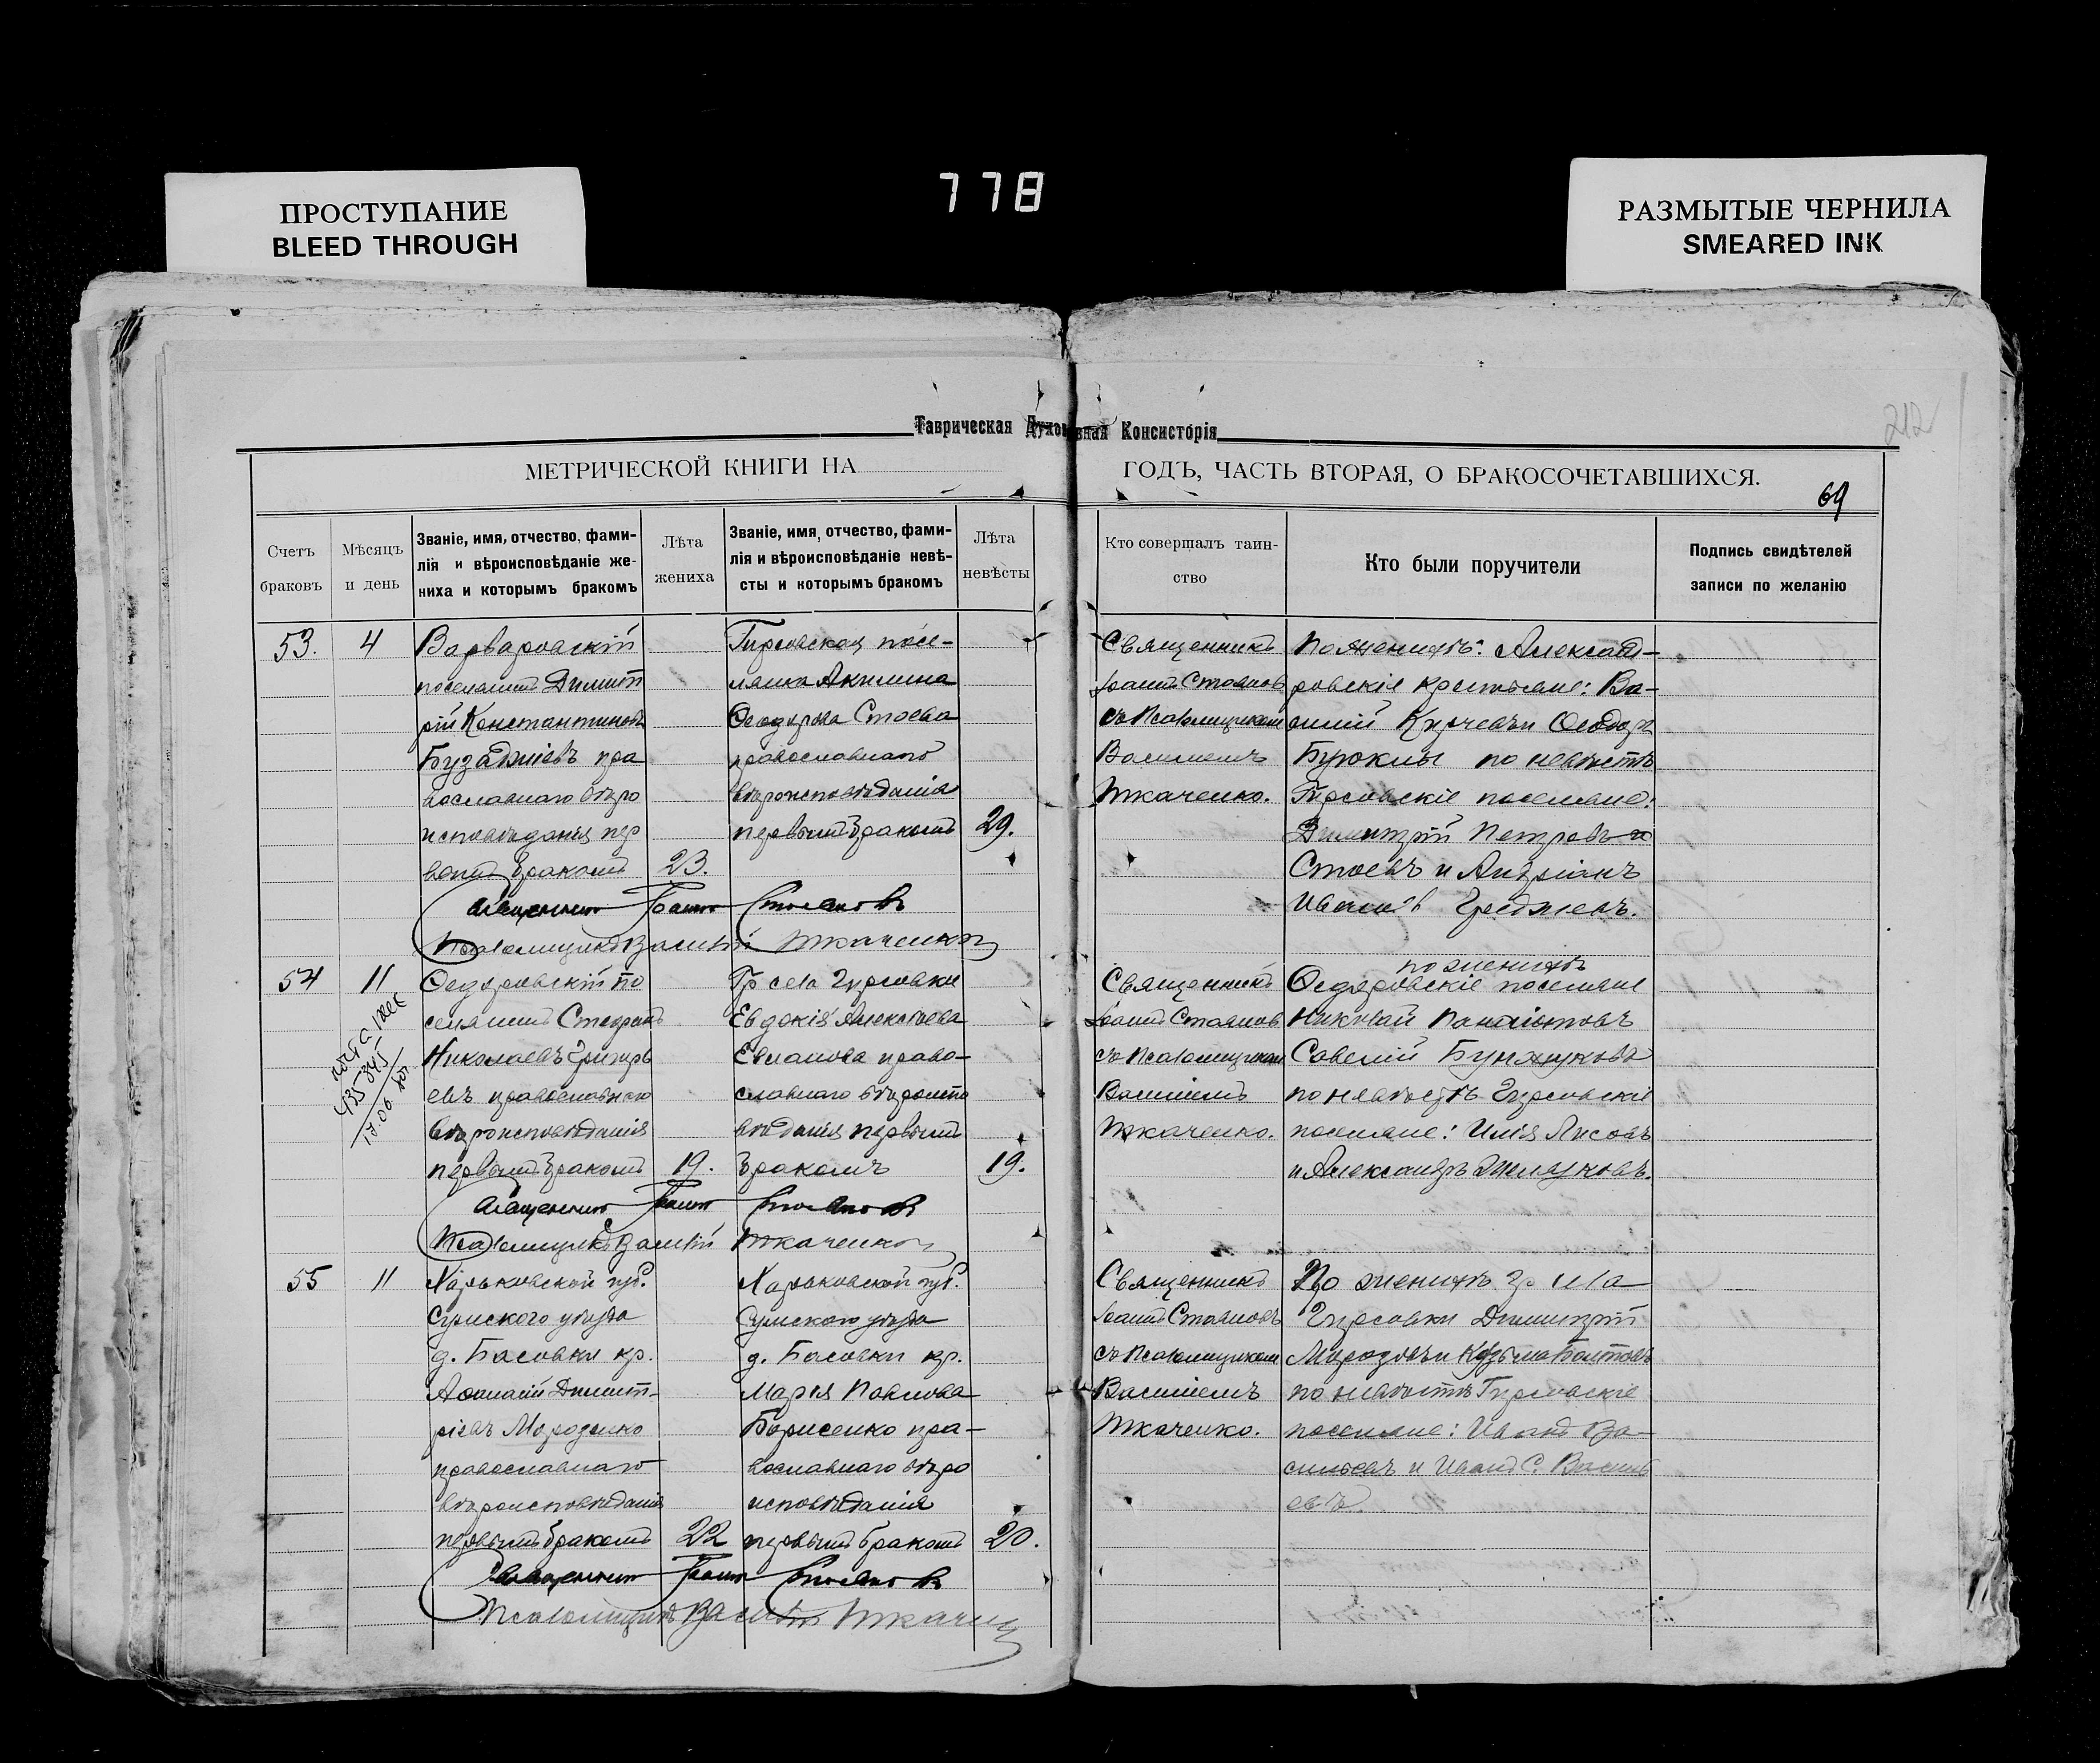 ПРОСТУПАНИЕ
BLEED THROUGH
778
РАЗМЫТЫЕ ЧЕРНИЛА
SMEARED INK
212
Таврическая Духовная Консисторія
МЕТРИЧЕСКОЙ КНИГИ НА
ГОДЪ, ЧАСТЬ ВТОРАЯ, О БРАКОСОЧЕТАВШИХСЯ.
69
Счетъ
браковъ
Мѣсяцъ
и день
Званіе, имя, отчество, фами-
лія и вѣроисповѣданіе же-
ниха и которымъ бракомъ
Лѣта
жениха
Званіе, имя, отчество, фами-
лія и вѣроисповѣданіе невѣ-
сты и которымъ бракомъ
Лѣта
невѣсты
Кто совершалъ таин-
ство
Кто были поручители
Подпись свидѣтелей
записи по желанію
53.
4
Варваровскій
поселянинъ Димит
рій Константиновъ
Бузаджіевъ пра
вославнаго вѣро
исповѣданія пер
вымъ бракомъ
23.
Гирсовская посе-
лянка Акилина
Ѳеодорова Стоева
православнаго
вѣроисповѣданія
первымъ бракомъ
29.
Священникъ
Іоаннъ Стояновъ
съ Псаломщикомъ
Василіемъ
Ткаченко.
По женихѣ: Александ-
ровскіе крестьяне: Ва-
силій Кирчевъ и Ѳеодоръ
по невѣстѣ
Гирсовскіе поселяне:
Димитрій Петровъ
Стоевъ и Андріанъ
Ивановъ
Священникъ Іоаннъ Стояновъ
Псаломщикъ Василій Ткаченко
54
11
435 845
17.06
Ѳедоровскій по
селянинъ Стефанъ
Николаевъ Григорь
евъ православнаго
вѣроисповѣданія
первымъ бракомъ
19.
Гр села Гирсовки
Евдокія Алексѣева
право-
славнаго вѣроиспо
вѣданія первымъ
бракомъ
19.
Священникъ
Іоаннъ Стояновъ
съ Псаломщикомъ
Василіемъ
Ткаченко.
по женихѣ
Ѳедоровскіе поселяне
Николай
Савелій
по невѣстѣ Гирсовскіе
поселяне: Илія Лисовъ
и Александръ
Священникъ Іоаннъ Стояновъ
Псаломщикъ Василій Ткаченко
55
11
Харьковской губ.
Сумскаго уѣзда
д. Басовки кр.
Аѳанасій Димит-
ріевъ
православнаго
вѣроисповѣданія
первымъ бракомъ
22
Харьковской губ.
Сумскаго уѣзда
д. Басовки кр.
Марія Павлова
Борисенко пра-
вославнаго вѣро
исповѣданія
первымъ бракомъ
20.
Священникъ
Іоаннъ Стояновъ
съ Псаломщикомъ
Василіемъ
Ткаченко.
По женихѣ гр села
Гирсовки Димитрій
Морозовъ и Козьма
по невѣстѣ Гирсовскіе
поселяне: Иванъ Ва-
сильевъ и Иванъ С. Василь
евъ.
Священникъ Іоаннъ Стояновъ
Псаломщикъ Василій Ткаченко